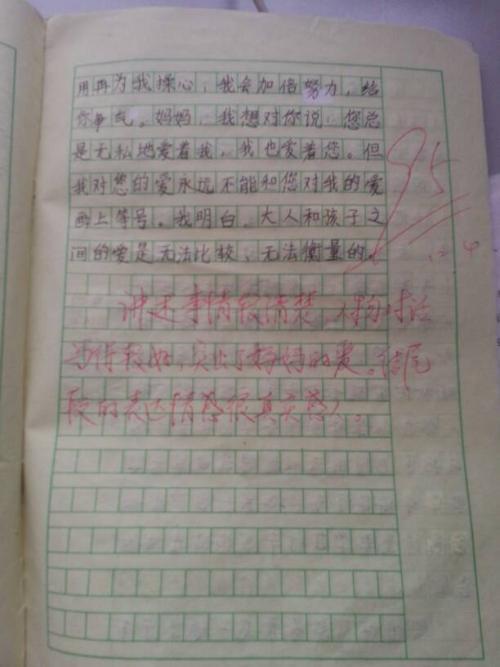 用再为我操心，我会加倍努力，给
你争气。妈妈，我想对你说，您总
是无私地爱着我，我也爱着您。但
我对您的爱永远不能和您对我的爱
画上等号。我明白，大人和孩子之
间的爱是无法比较，无法衡量的。
95
12.4
讲述事情较清楚，人物对话
写得较好，突出了妈妈的爱。结尾
段的表达情感很真实感人。